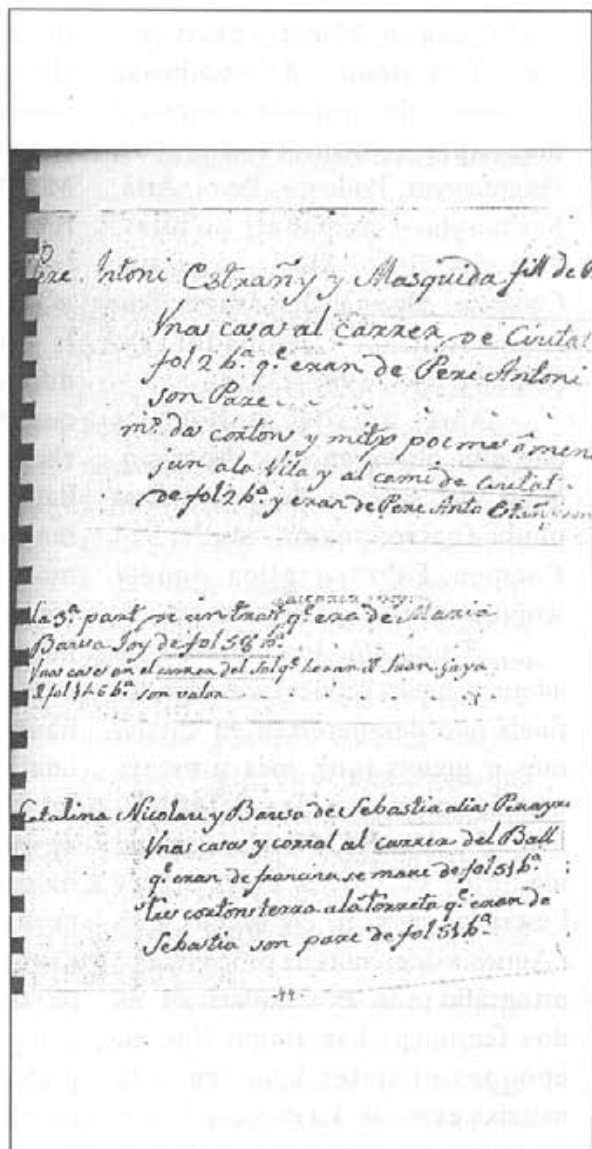 Pere Antoni Estrañy y Masquida fill de P
Vnas casas al Carrer de Ciutat
fol 2 bª. qᵉ eran de Pere Antoni
son Pare
mª dos cortons y mitx poc mes ô men
sun a la Vila y al cami de Ciutat
de fol 2 bª. y eran de Pere Anto
la 3ª part de un trast qᵉ era de Maria
Barsa Joy de fol 58 bª.
Vnas cases en el carrer del Sol qᵉ heran d Juan Gaya
d fol 146 bª son valor
Catalina Nicolau y Barsa de Sebastia alias Peraya
Vnas casas y corral al carrer del Ball
qᵉ eran de francina se mare de fol 51 bª
tres cortons terra a la torreta qᵉ eran de
Sebastia son pare de fol 51 bª